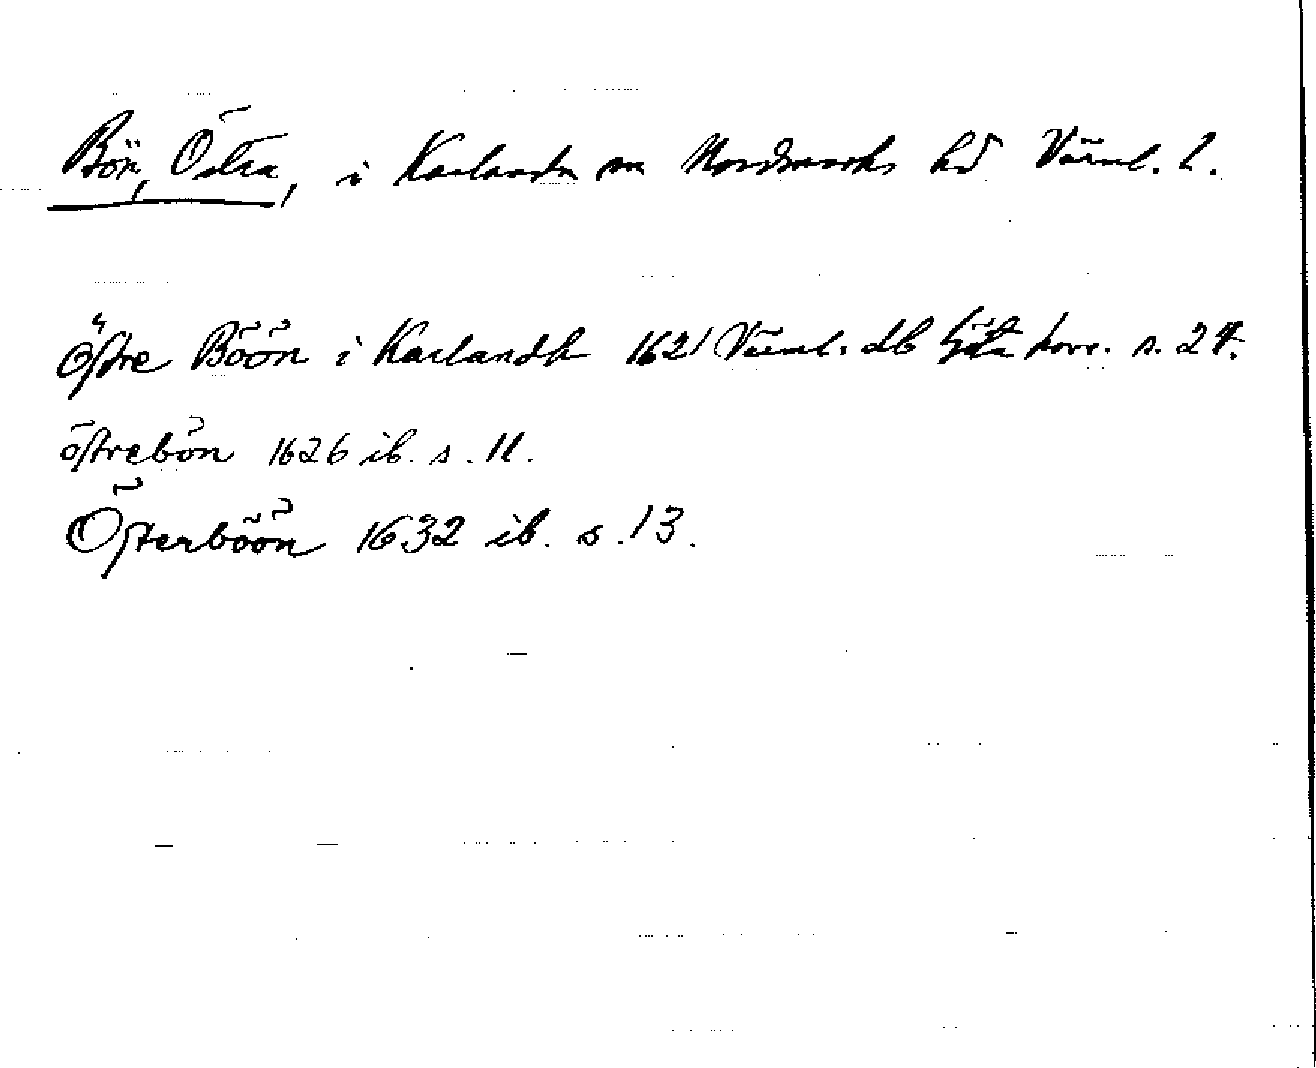 Bön, Östra, i Karlanda sn Nordmarks hd Värml. l.
östre Böön i Karlandh 1621 Värml. db Göta hovr. s. 27.
östrebön 1626 ib. s. 11.
Österböön 1632 ib. s. 13.